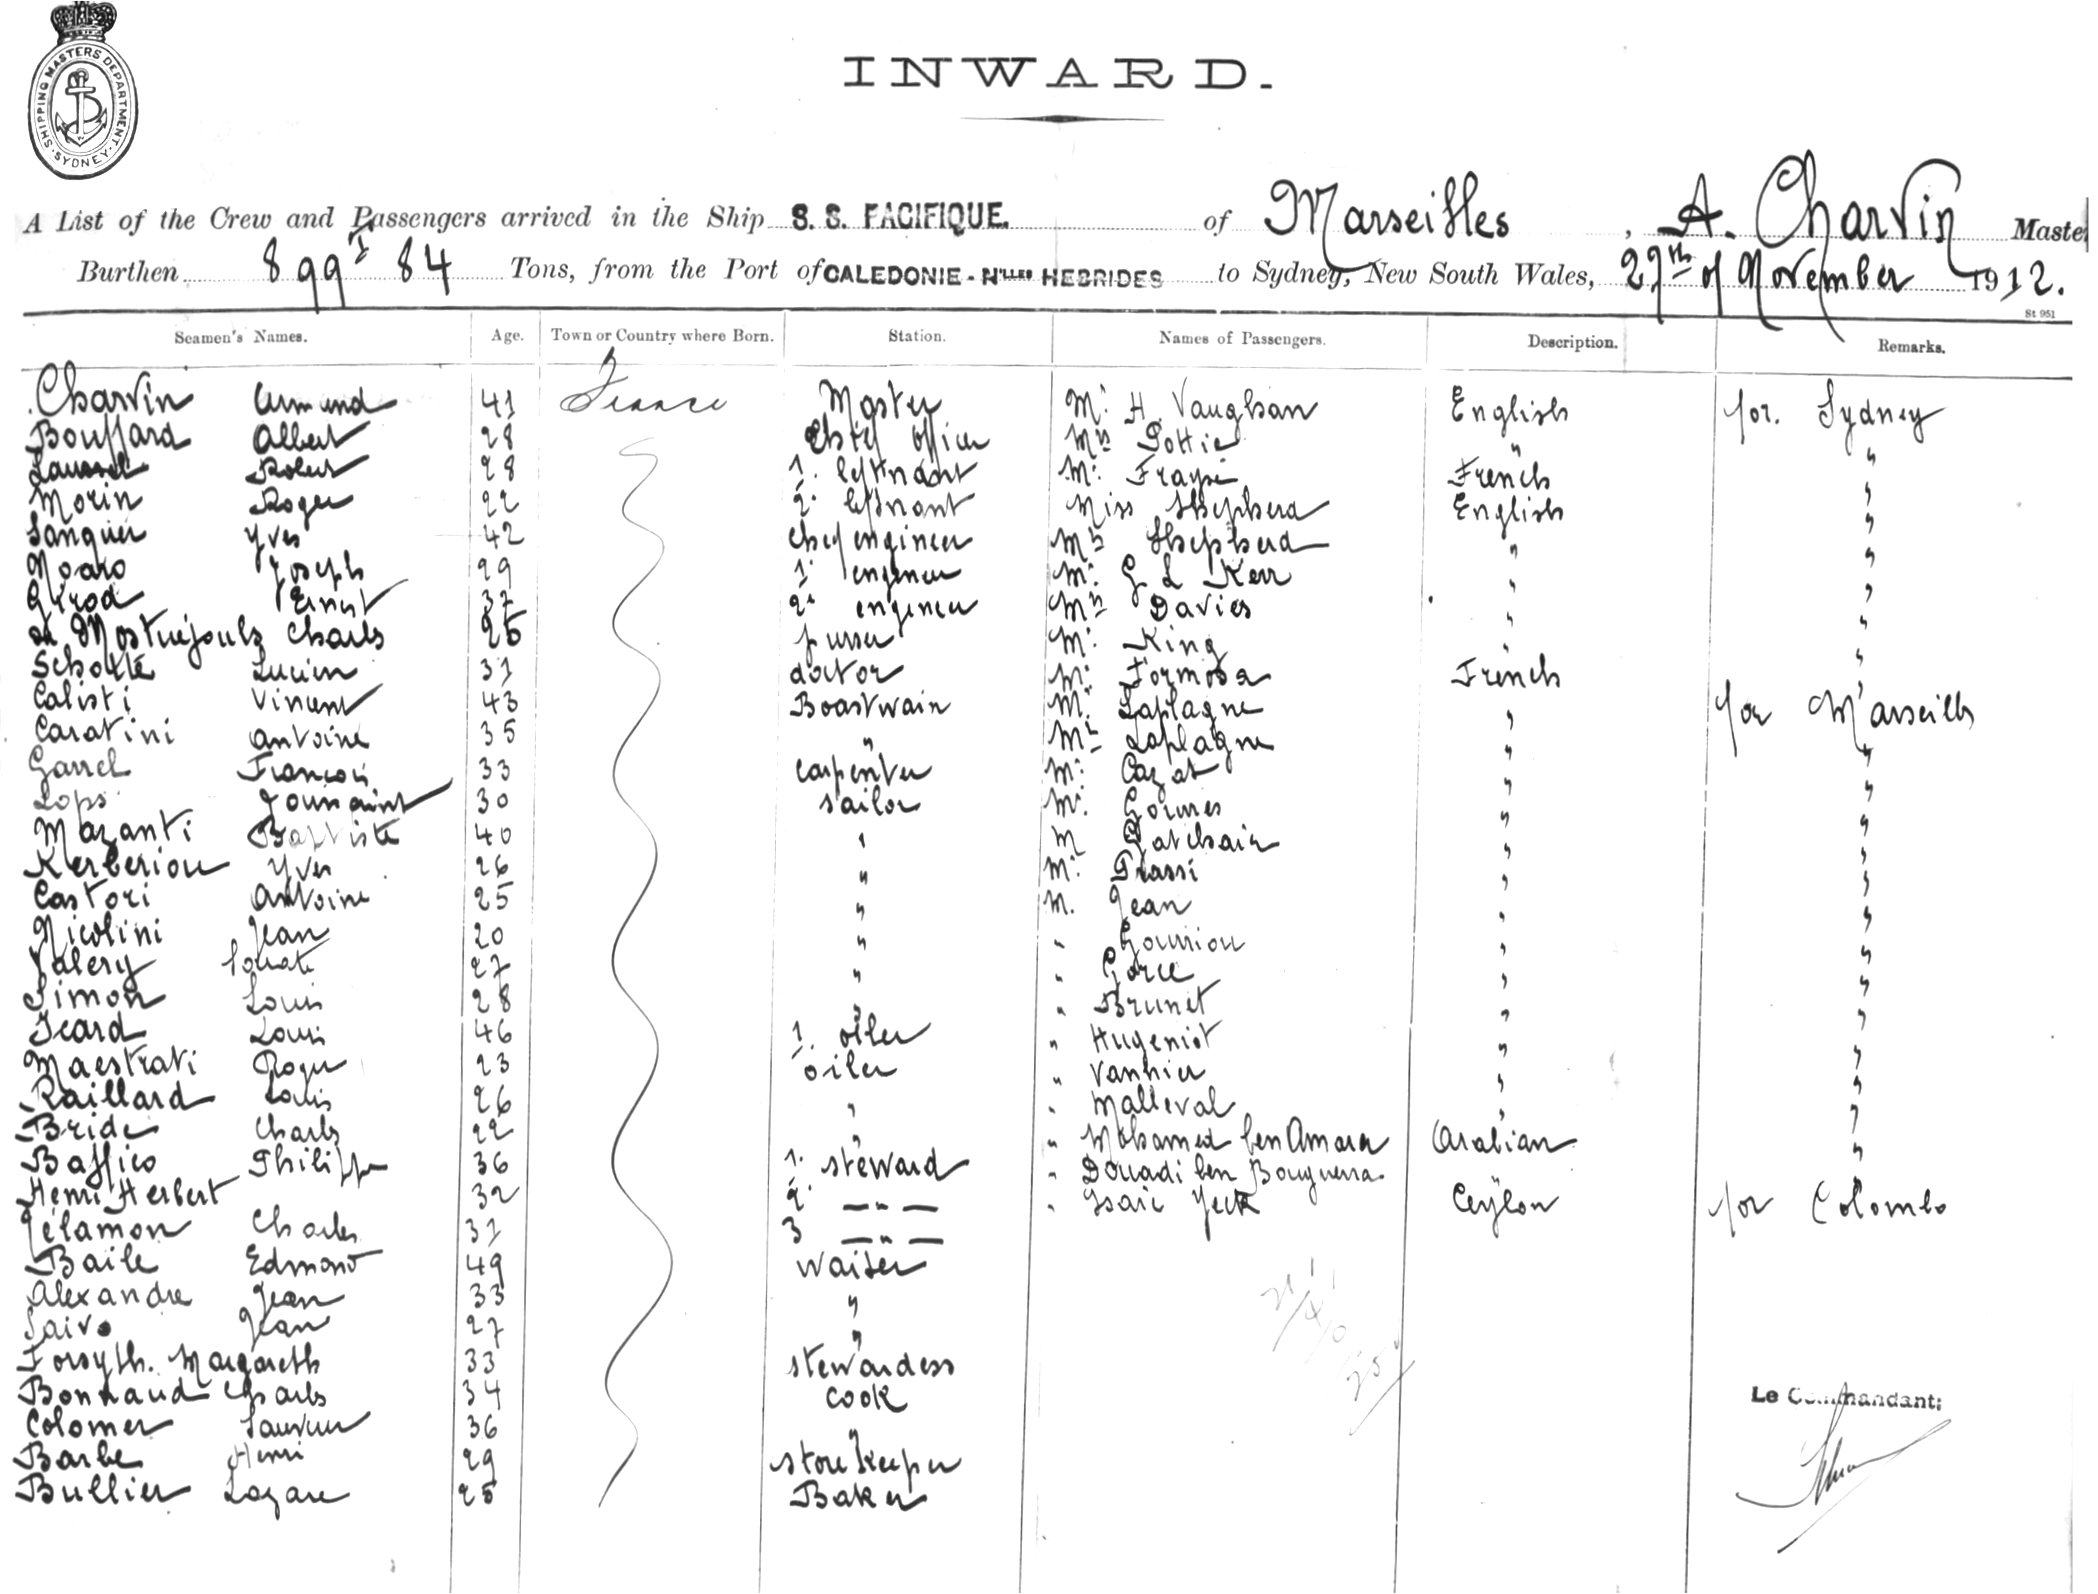 SHIPPING MASTERS DEPARTMENT. SYDNEY.
INWARD.
A List of the Crew and Passengers arrived in the Ship S. S. PACIFIQUE. of Marseilles, A. Charvin Master
Burthen 899 84 Tons, from the Port of CALEDONIE - Nlles HEBRIDES to Sydney, New South Wales, 27th of November 1912.
St 951
Seamen's Names. Age. Town or Country where Born. Station. Names of Passengers. Description. Remarks.
Charvin Armand 41 France Master Mr H. Vaughan English for. Sydney
Bouffard Albert 28 Chief officer Mrs Pottie " "
Robert 28 1. leftnant Mr French "
Morin Roger 22 2. leftnant Miss Shepherd English "
Sanquer Yves 42 chef engineer Mrs Shepherd " "
Noaro Joseph 29 1. engineer Mr. G L Kerr " "
Girod Ernest 37 2. engineer Mrs Davies " "
de Mostuejouls Charles 25 purser Mr. King " "
Scholte Lucien 31 doctor Mr Formosa French "
Calisti Vincent 43 Boastwain Mr. Laplagne " for Marseilles
Caratini Antoine 35 " Mrs Laplagne " "
Garrel François 33 carpenter Mr. Cazat " "
Lops Toussaint 30 sailor Mr. Gormes " "
Mazanti Baptiste 40 " M " "
Kerberiou Yves 26 " Mr. " "
Castori Antoine 25 " M. Jean " "
Nicolini Jean 20 " " Gourriou " "
Valery 27 " " Garce " "
Simon Louis 28 " " Brunet " "
Icard Louis 46 1. oiler " Hugeniot " "
Maestrati Roger 23 oiler " Vannier " "
Raillard Louis 26 " " Malleval " "
Bride Charles 22 " " Mohamed ben Amara Arabian "
Baffico Philippe 36 1. steward " Douadi ben Bouguerra "
Henri Herbert 32 2. — " — " Isaac Ceylon for Colombo
Télamon Charles 31 3 — " —
Baile Edmond 49 waiter
Alexandre Jean 33 "
Saivo Jean 27 "
Forsyth. Margareth 33 stewardess
Bonnaud Charles 34 cook
Colomer Sauveur 36 "
Barbe Henri 29 store keeper
Bullier Lazare 25 Baker
Le Commandant;